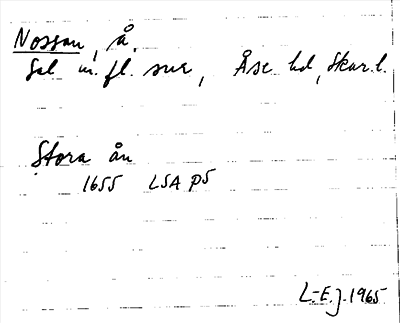 Nossan, å.
Sal m. fl. snr, Åse hd, Skar. l.
Stora ån
1655 LSA p5
L-E. J. 1965